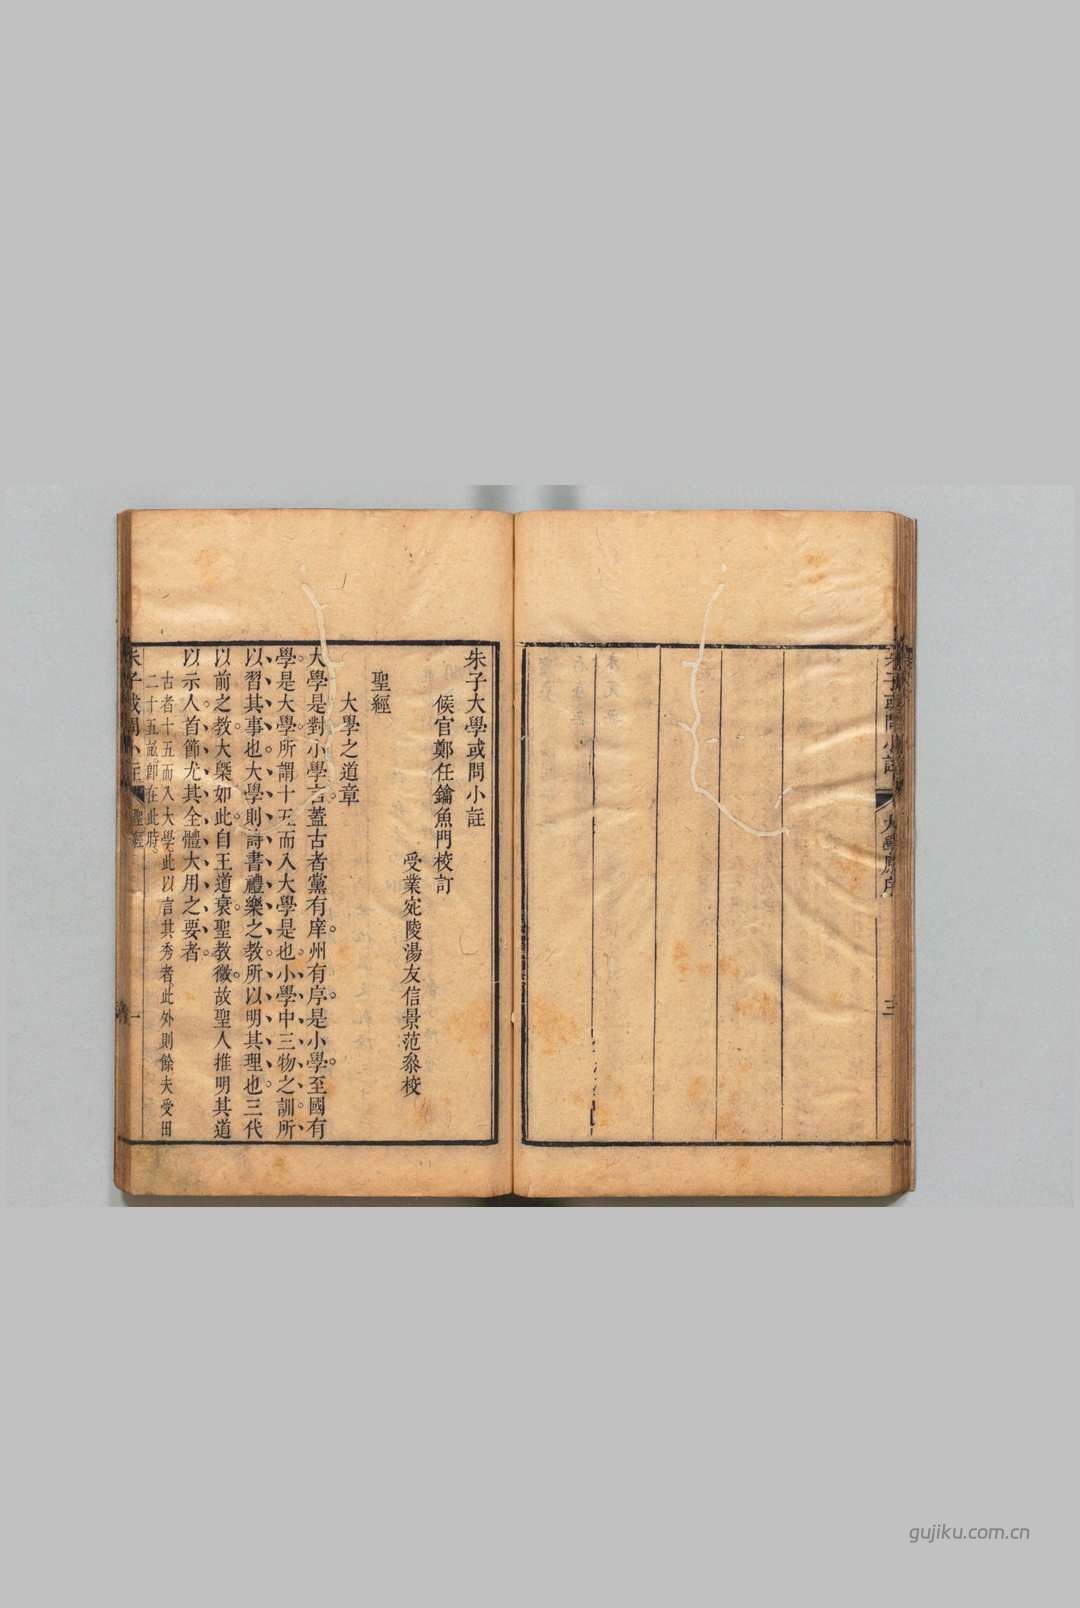 朱子或問小註
大學原序
三
朱子大學或問小註
候官鄭任鑰魚門校訂
受業宛陵湯友信景范叅校
聖經
大學之道章
大學是對小學言蓋古者黨有庠州有序是小學至國有
學是大學所謂十五而入大學是也小學中三物之訓所
以習其事也大學則詩書禮樂之教所以明其理也三代
以前之教大槩如此自王道衰聖教微故聖人推明其道
以示人首節尤其全體大用之要者
古者十五而入大學此以言其秀者此外則餘夫受田
二十五畝卽在此時
朱子或問小註
聖經
一
gujiku.com.cn